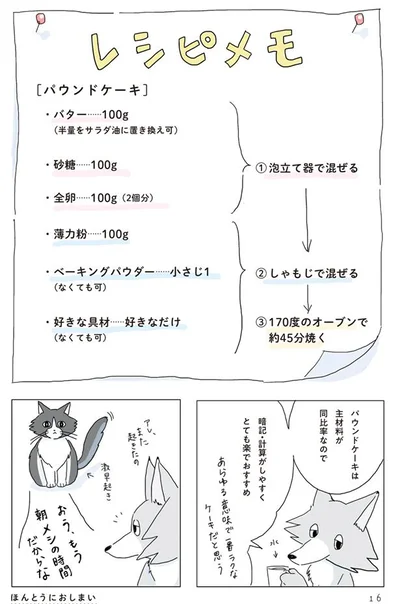 レシピメモ
［パウンドケーキ］
・バター……100g
（半量をサラダ油に置き換え可）
・砂糖……100g
・全卵……100g（2個分）
・薄力粉……100g
・ベーキングパウダー……小さじ1
（なくても可）
・好きな具材……好きなだけ
（なくても可）
①泡立て器で混ぜる
②しゃもじで混ぜる
③170度のオーブンで
約45分焼く
パウンドケーキは
主材料が
同比率なので
暗記・計算がしやすく
とても楽でおすすめ
あらゆる意味で一番ラクな
ケーキだと思う
水
アレ、
また
起きたの
激早起き
おう、もう
朝メシの時間
だからな
ほんとうにおしまい
16